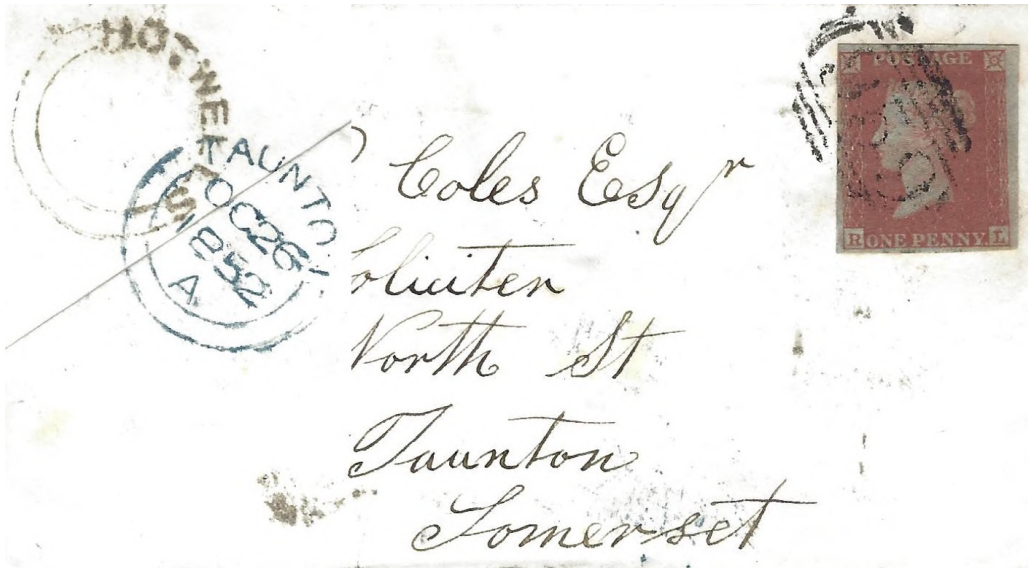 HOTWELLS
TAUNTON
OC 26
1852
A
POSTAGE
R ONE PENNY L
Coles Esqr
Soliciter
North St
Taunton
Somerset